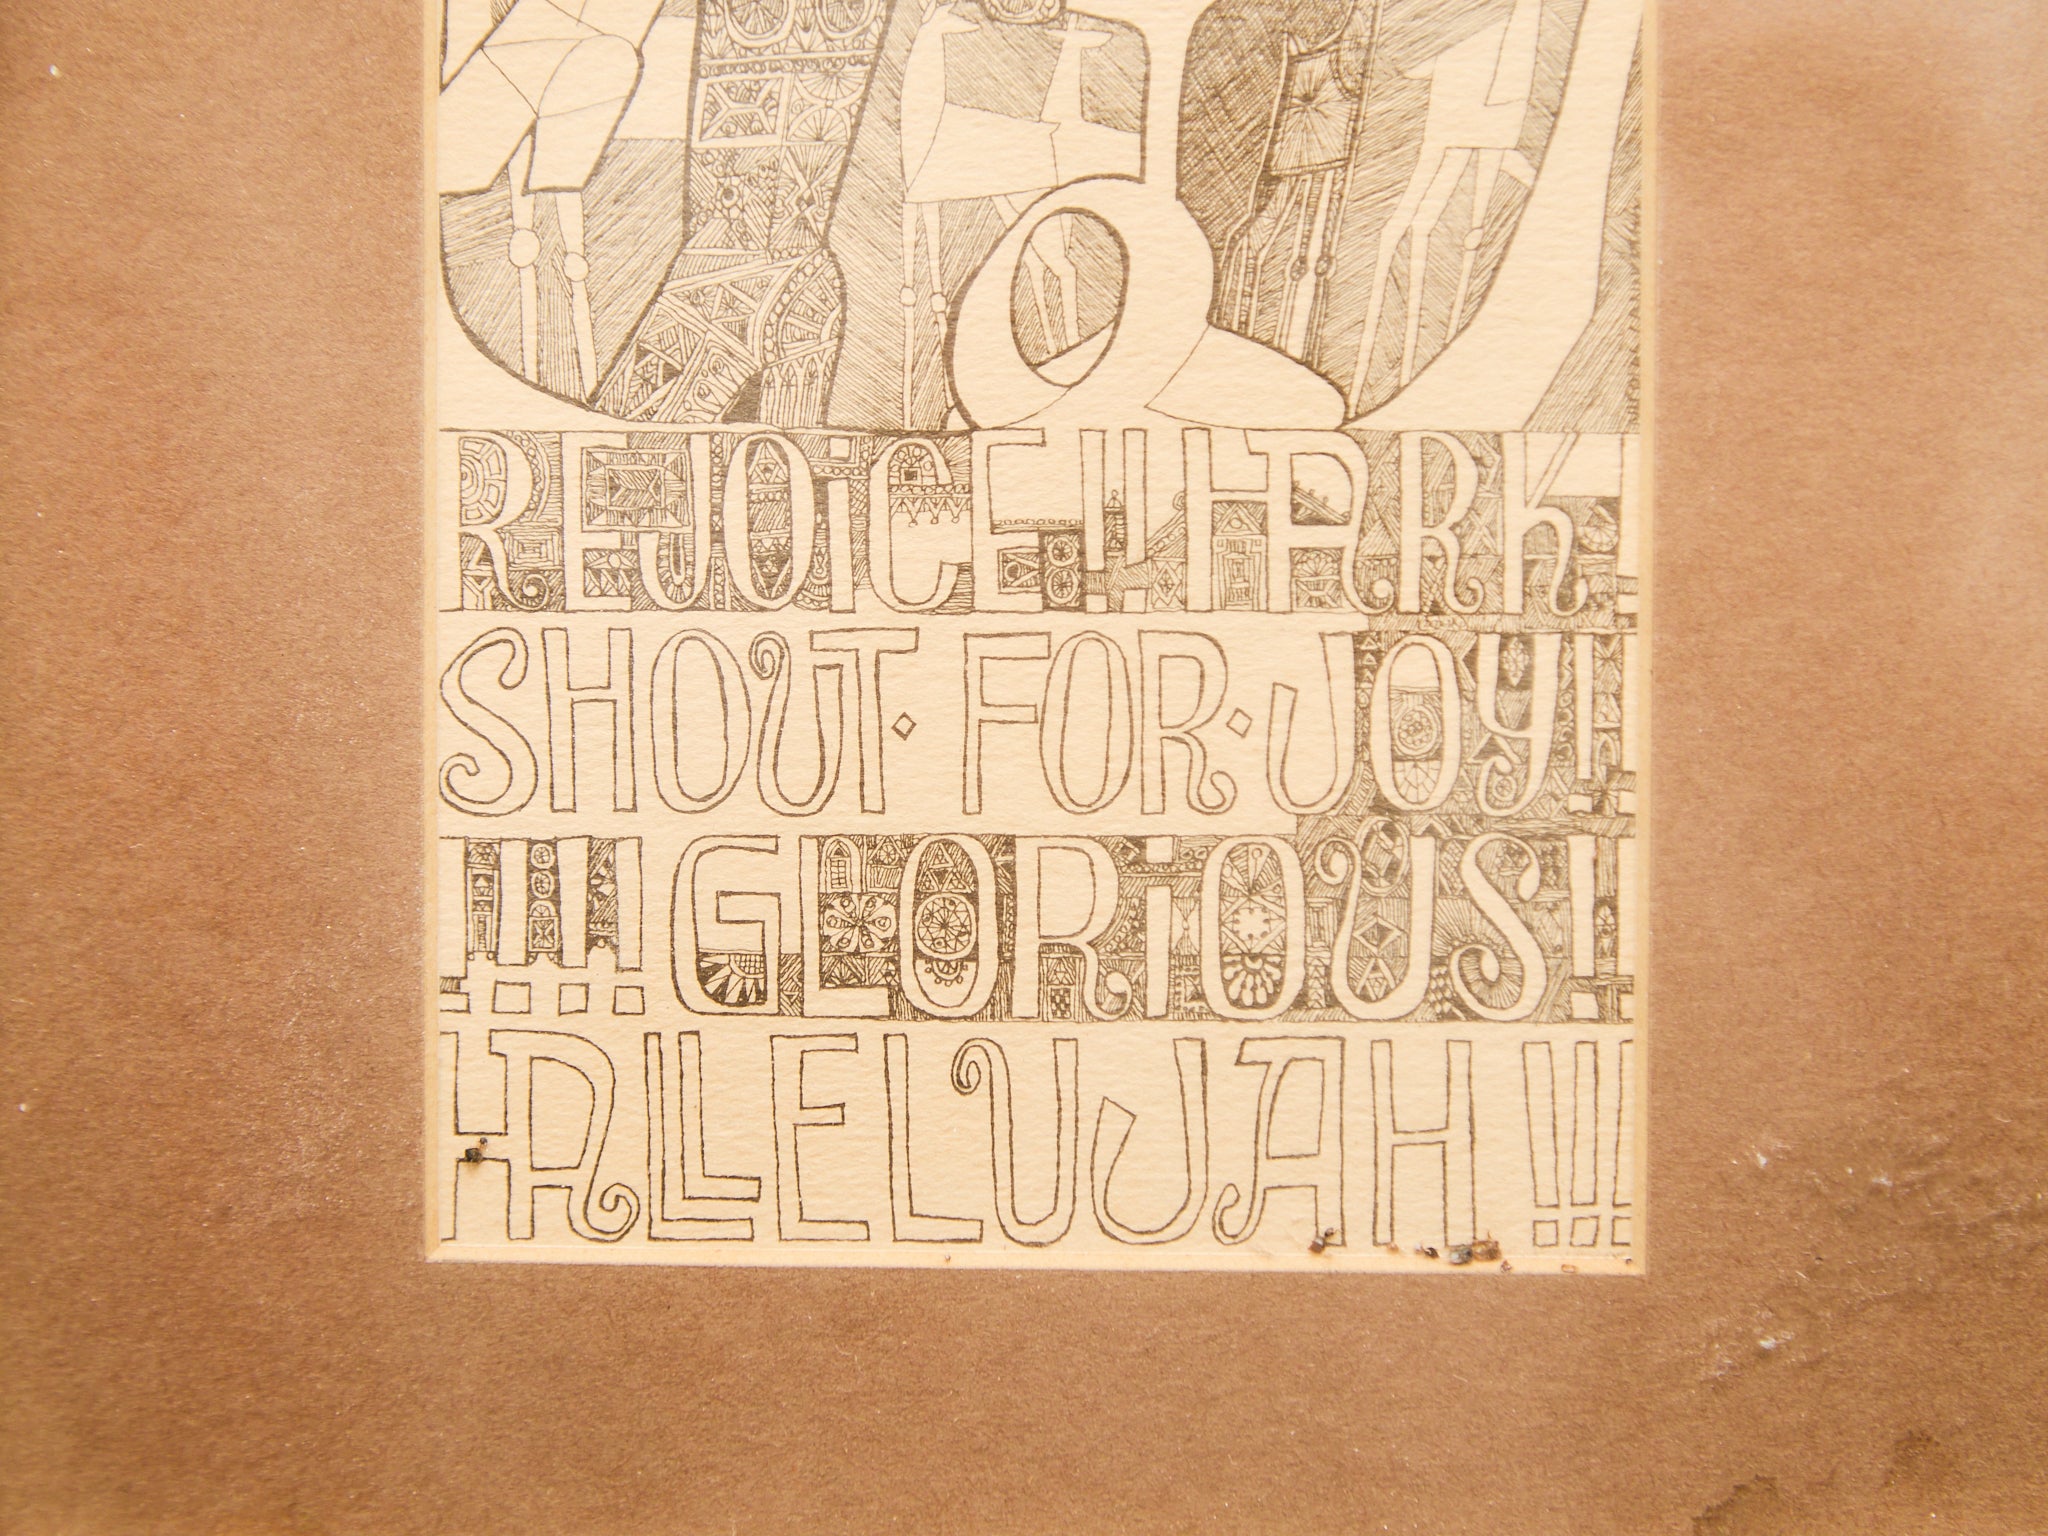 REJOiCE!! HARK!
SHOUT · FOR · JOY!!
!!!! GLORiOUS!!
HALLELUJAH !!!